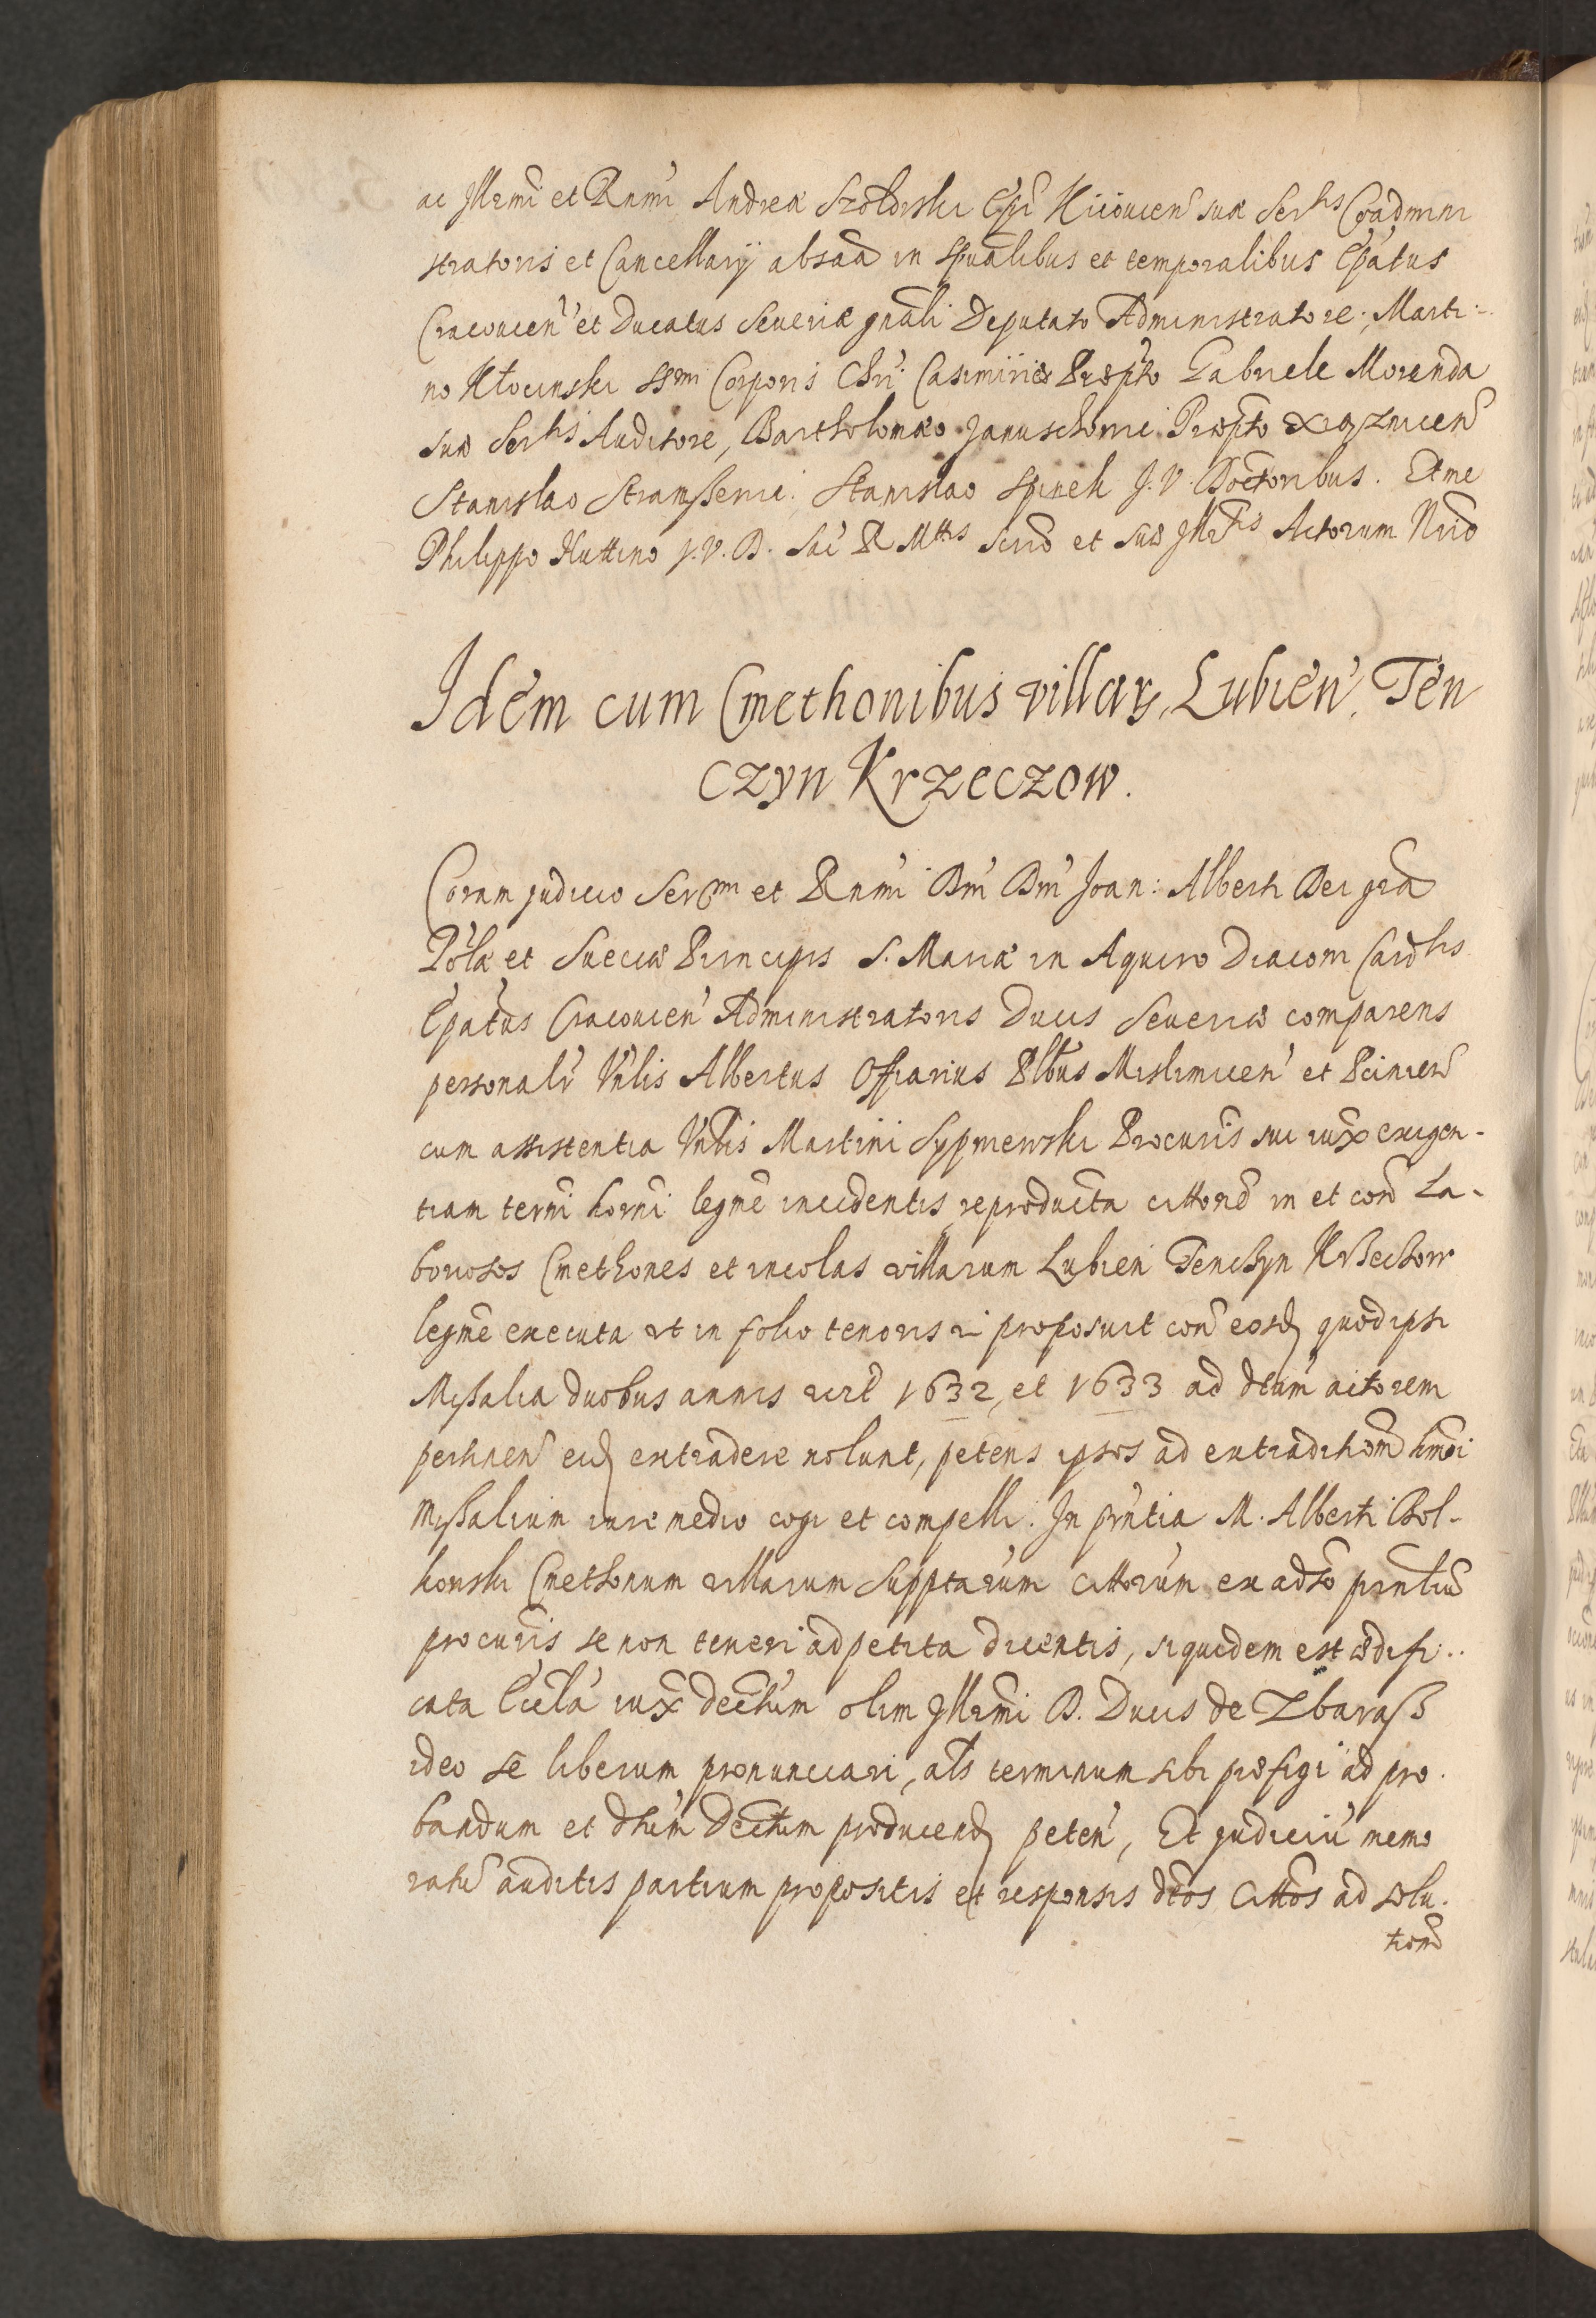 ac Jllrmi et Rnmi Andreæ Szołdrski Epi Kiiouien suæ Sertis Coadmini
stratoris et Cancellarÿ absaa in spualibus et temporalibus Epatus
Cracouien et Ducatus Seueriæ gnali Deputato Administratore; Marti-
no Kłocinski SSmi Corporis Chri Casimiriæ Præpto Gabriele Morenda
suæ Sertis Auditore, Bartholomæo Januschowic Præpto
Stanislao Stramszenic. Stanislao Spinek J. V. Doctoribus. Et me
Philippo Huttino J. V. D. Sac R Mttis Scrio et suæ Jllrtis Actorum Nrio
Idem cum Cmethonibus villar, Lubien, Ten
czyn Krzeczow.
Coram judicio Sermi et Rnmi Dni Dni Joan: Alberti Dei gra
Polæ et Sueciæ Principis S. Mariæ in Aquiro Diaconi Cardlis
Epatus Cracouien Administratoris Ducis Seueriæ comparens
personalr Vnlis Albertus Offiarius Plbus Mislimicen et Pcimien
cum assistentia Vnlis Martini Sypniewski Procuris sui iux exigen-
tiam termi horni legme incidentis, reproducta cittone in et con La-
boriosos Cmethones et incolas villarum Lubien Tenczyn Krzeczow
legme executa ut in folio tenoris r: proposuit con eosd quod ipsi
Missalia duobus annis uirt 1632, et 1633 ad dtum actorem
pertinen eid extradere nolunt, petens ipsos ad extraditionem hmoi
missalium iuris medio cogi et compelli. In pntia M. Alberti Bol-
konski Cmethonum villarum supptarum cittorum ex adso pnntium
procuris se non teneri ad petita dicentis, siquidem est ædifi-
cata Eccla iux dectum olim Jllrmi D. Ducis de Zbarasz
ideo se liberum pronunciari, als terminum sibi præfigi ad pro-
bandum et dtum Dectum producend peten, Et judiciu memo
ratu auditis partium propositis et responsis dtos Cittos ad solu-
tione